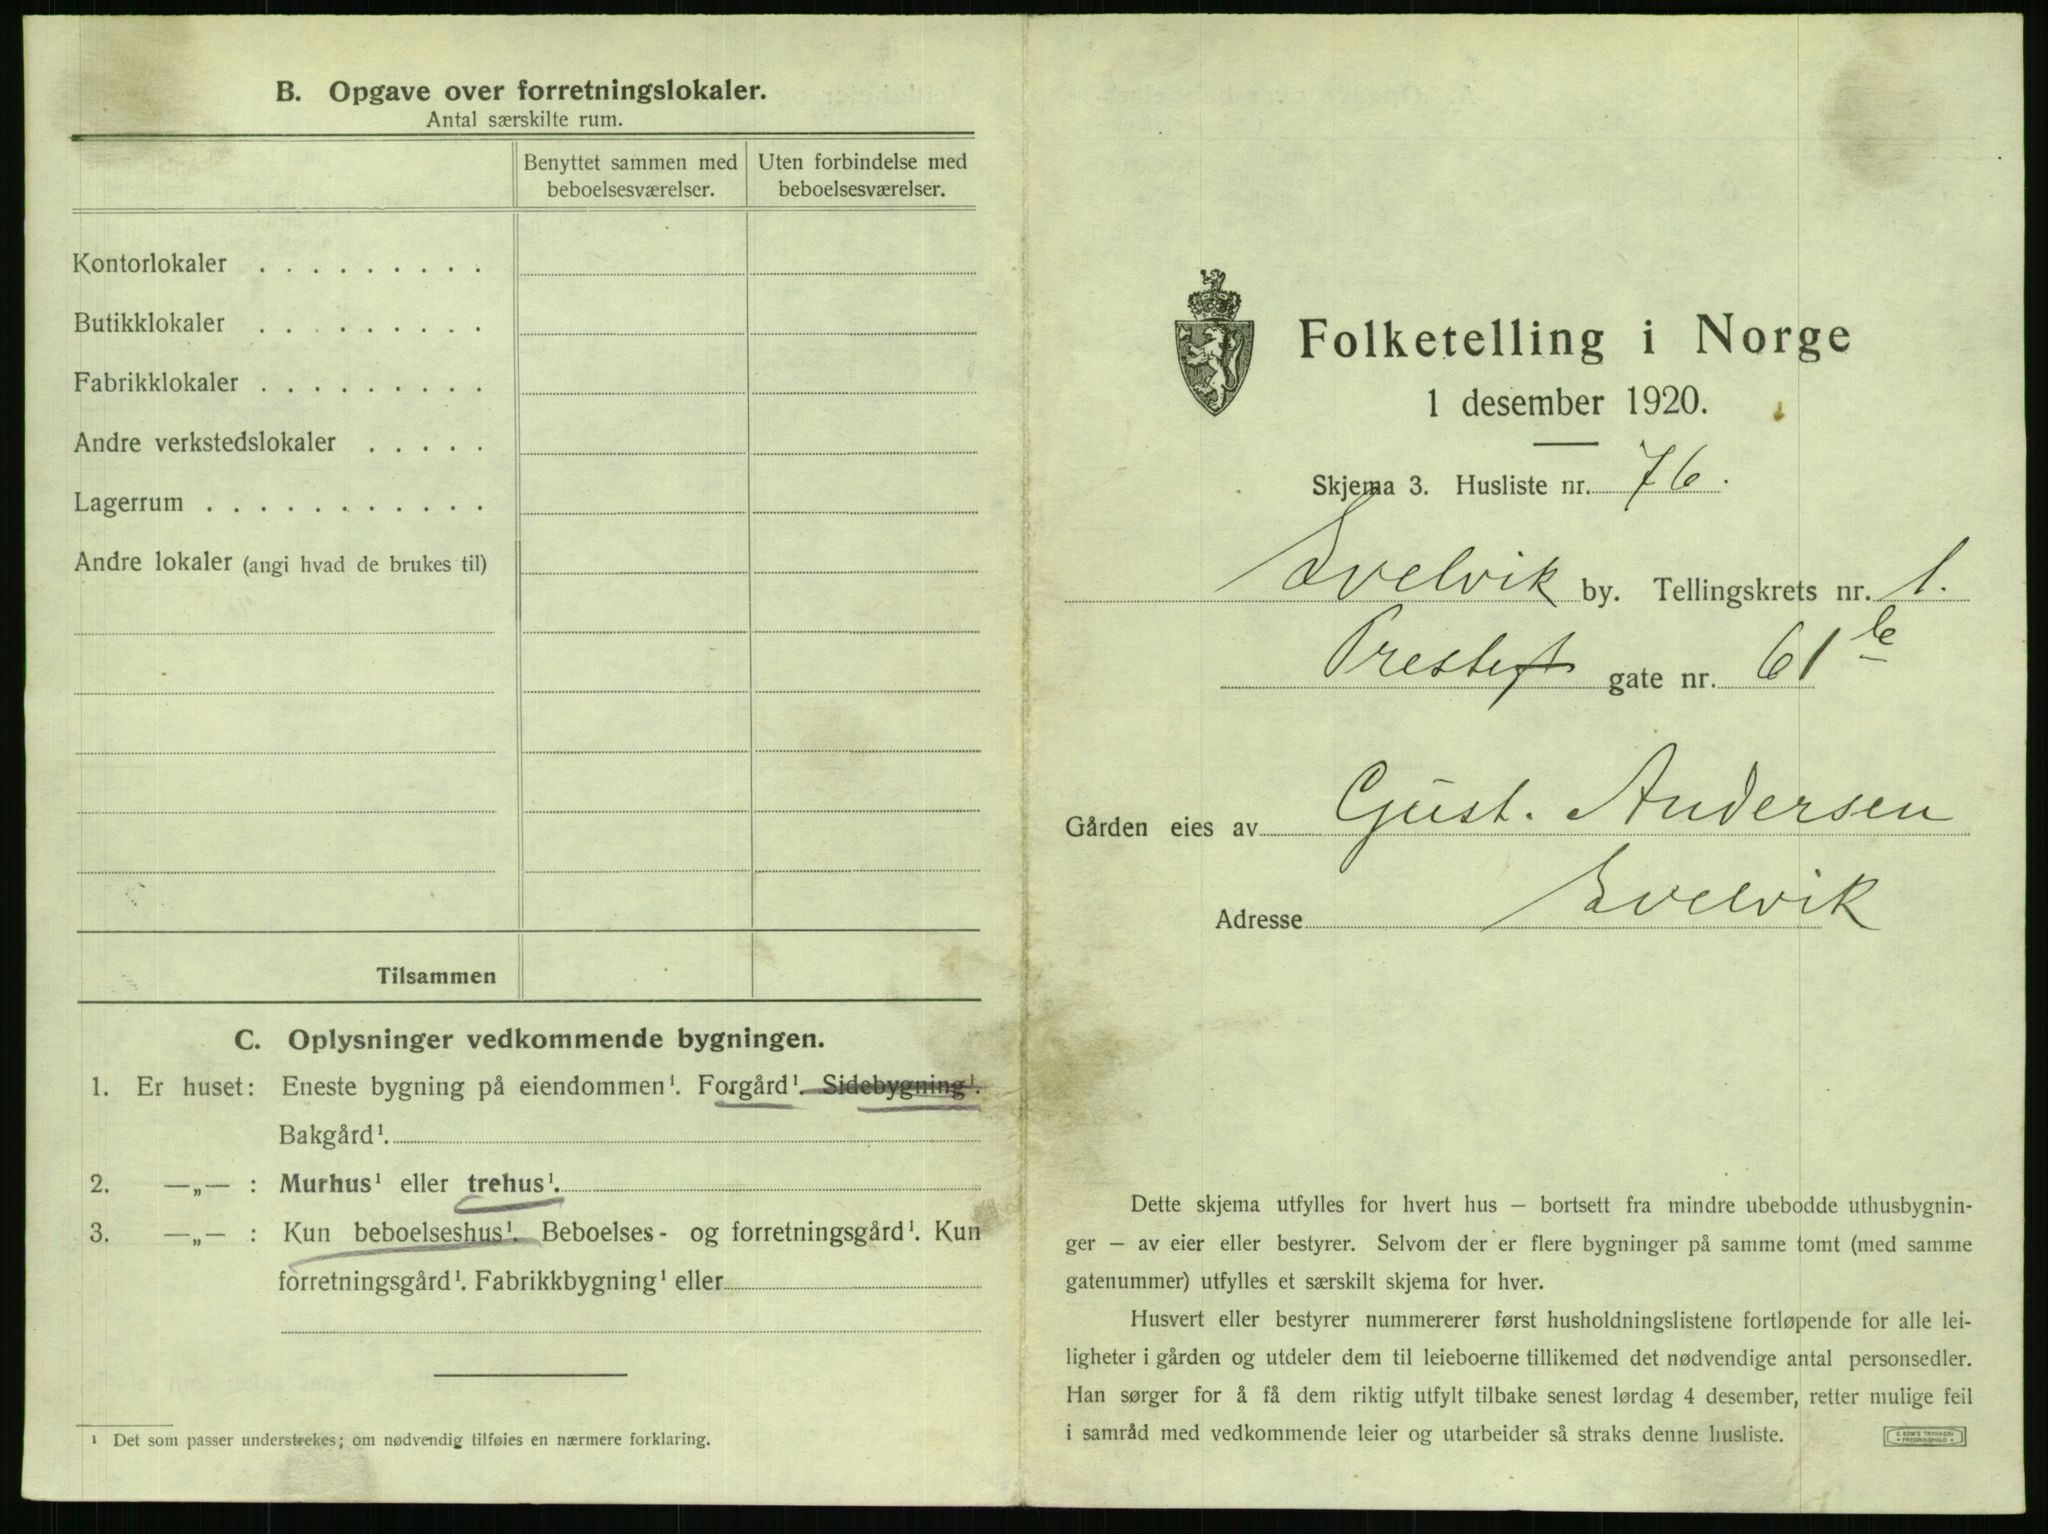 B. Opgave over forretningslokaler.
Antal særskilte rum.
Benyttet sammen med beboelsesværelser.
Uten forbindelse med beboelsesværelser.
Kontorlokaler . . . . . . . . .
Butikklokaler . . . . . . . . .
Fabrikklokaler . . . . . . . . .
Andre verkstedslokaler . . . . .
Lagerrum . . . . . . . . . . .
Andre lokaler (angi hvad de brukes til)
Tilsammen
C. Oplysninger vedkommende bygningen.
1. Er huset: Eneste bygning på eiendommen¹. Forgård¹. Sidebygning¹.
Bakgård¹.
2. —„— : Murhus¹ eller trehus¹.
3. —„— : Kun beboelseshus¹. Beboelses- og forretningsgård¹. Kun
forretningsgård¹. Fabrikkbygning¹ eller
¹ Det som passer understrekes; om nødvendig tilføies en nærmere forklaring.
Folketelling i Norge
1 desember 1920.
Skjema 3. Husliste nr. 76.
Svelvik by. Tellingskrets nr. 1.
gate nr. 61
Gården eies av Gust. Andersen
Adresse Svelvik
Dette skjema utfylles for hvert hus — bortsett fra mindre ubebodde uthusbygnin-
ger — av eier eller bestyrer. Selvom der er flere bygninger på samme tomt (med samme
gatenummer) utfylles et særskilt skjema for hver.
Husvert eller bestyrer nummererer først husholdningslistene fortløpende for alle lei-
ligheter i gården og utdeler dem til leieboerne tillikemed det nødvendige antal personsedler.
Han sørger for å få dem riktig utfylt tilbake senest lørdag 4 desember, retter mulige feil
i samråd med vedkommende leier og utarbeider så straks denne husliste.
E. SEM'S TRYKKERI
• FREDRIKSHALD •